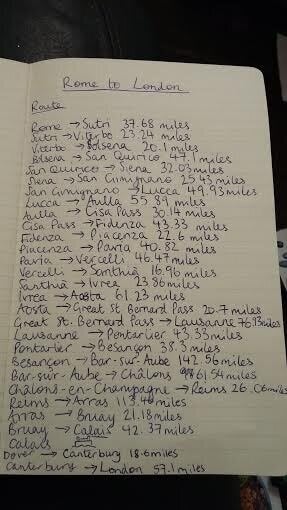 Rome to London
Route
Rome → Sutri 37.68 miles
Sutri → Viterbo 23.24 miles
Viterbo → Bolsena 20.1 miles
Bolsena → San Quirico 47.1 miles
San Quirico → Siena 32.03 miles
Siena → San Gimignano 25.43 miles
San Gimignano → Lucca 49.93 miles
Lucca → Aulla 55.89 miles
Aulla → Cisa Pass 30.14 miles
Cisa Pass → Fidenza 43.33 miles
Fidenza → Piacenza 22.6 miles
Piacenza → Pavia 40.82 miles
Pavia → Vercelli 46.47 miles
Vercelli → Santhià 16.96 miles
Santhià → Ivrea 23.86 miles
Ivrea → Aosta 61.23 miles
Aosta → Great St Bernard Pass 20.7 miles
Great St. Bernard Pass → Lausanne 76.93 miles
Lausanne → Pontarlier 43.33 miles
Pontarlier → Besançon 38.3 miles
Besançon → Bar-sur-Aube 142.96 miles
Bar-sur-Aube → Châlons 61.54 miles
Châlons-en-Champagne → Reims 26.06 miles
Reims → Arras 113.46 miles
Arras → Bruay 21.18 miles
Bruay → Calais 42.37 miles
Calais
Dover → Canterbury 18.6 miles
Canterbury → London 57.1 miles